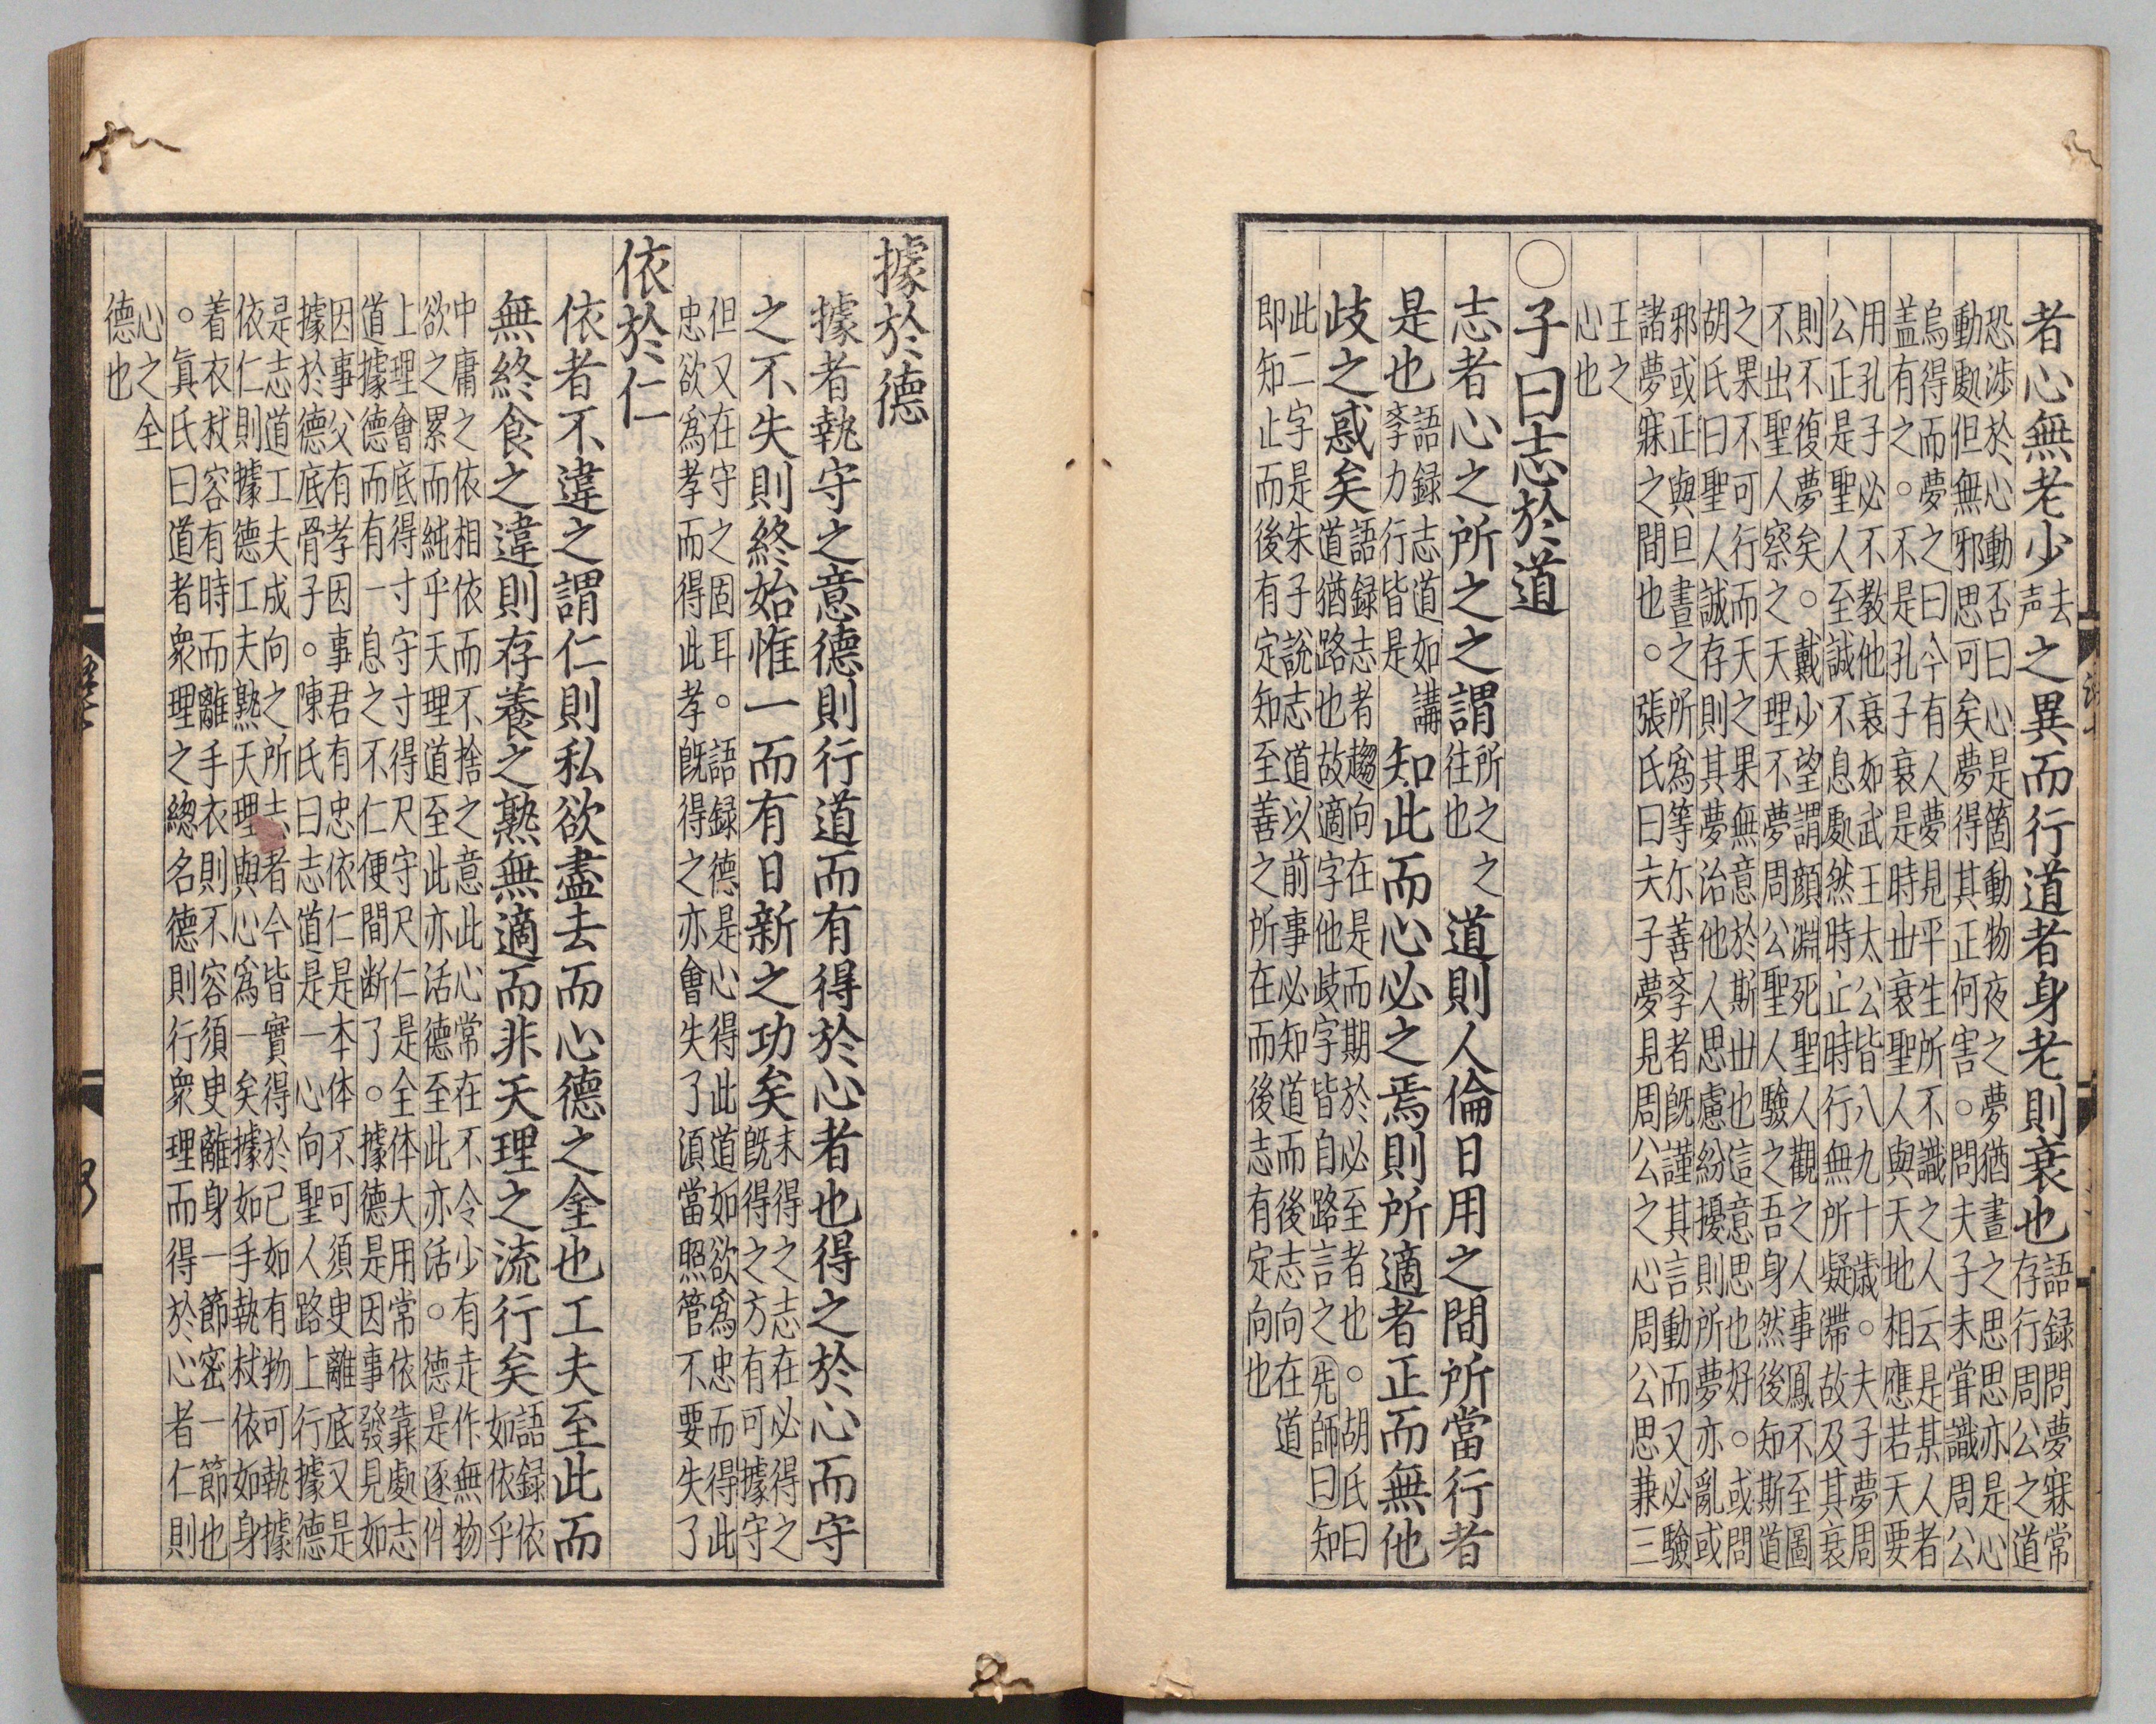 者心無老少去声之異而行道者身老則衰也語録問夢寐常
存行周公之道
恐渉於心動否曰心是箇動物夜之夢猶晝之思思亦是心
動處但無邪思可矣夢得其正何害。問夫子未甞識周公
烏得而夢之曰今有人夢見平生所不識之人云是某人者
盖有之。不是孔子衰是時丗衰聖人與天地相應若天要
用孔子必不教他衰如武王太公皆八九十歳。夫子夢周
公正是聖人至誠不息處然時止時行無所疑滯故及其衰
則不復夢矣。戴少望謂顔淵死聖人觀之人事鳳不至圖
不出聖人察之天理不夢周公聖人驗之吾身然後知斯道
之果不可行而天之果無意於斯丗也這意思也好。或問
胡氏曰聖人誠存則其夢治他人思慮紛擾則所夢亦亂或
邪或正與旦晝之所爲等尓善斈者旣謹其言動而又必驗
諸夢寐之間也。張氏曰夫子夢見周公之心周公思兼三
王之
心也
○子曰志於道
志者心之所之之謂所之之
往也道則人倫日用之間所當行者
是也語録志道如講
斈力行皆是知此而心必之焉則所適者正而無他
歧之惑矣語録志者趨向在是而期於必至者也。胡氏曰
道猶路也故適字他歧字皆自路言之先師曰知
此二字是朱子說志道以前事必知道而後志向在道
即知止而後有定知至善之所在而後志有定向也
據於德
據者執守之意德則行道而有得於心者也得之於心而守
之不失則終始惟一而有日新之功矣未得之志在必得之
旣得之方有可據守
但又在守之固耳。語録德是心得此道如欲爲忠而得此
忠欲爲孝而得此孝旣得之亦會失了湏當照管不要失了
依於仁
依者不違之謂仁則私欲盡去而心德之全也工夫至此而
無終食之違則存養之熟無適而非天理之流行矣語録依
如依乎
中庸之依相依而不捨之意此心常在不令少有走作無物
欲之累而純乎天理道至此亦活德至此亦活。德是逐件
上理會底得寸守寸得尺守尺仁是全体大用常依靠處志
道據德而有一息之不仁便間断了。據德是因事發見如
因事父有孝因事君有忠依仁是本体不可須臾離底又是
據於德底骨子。陳氏曰志道是一心向聖人路上行據德
是志道工夫成向之所志者今皆實得於己如有物可執據
依仁則據德工夫熟天理與心爲一矣據如手執杖依如身
着衣杖容有時而離手衣則不容須臾離身一節密一節也
。眞氏曰道者衆理之總名德則行衆理而得於心者仁則
心之全
德也